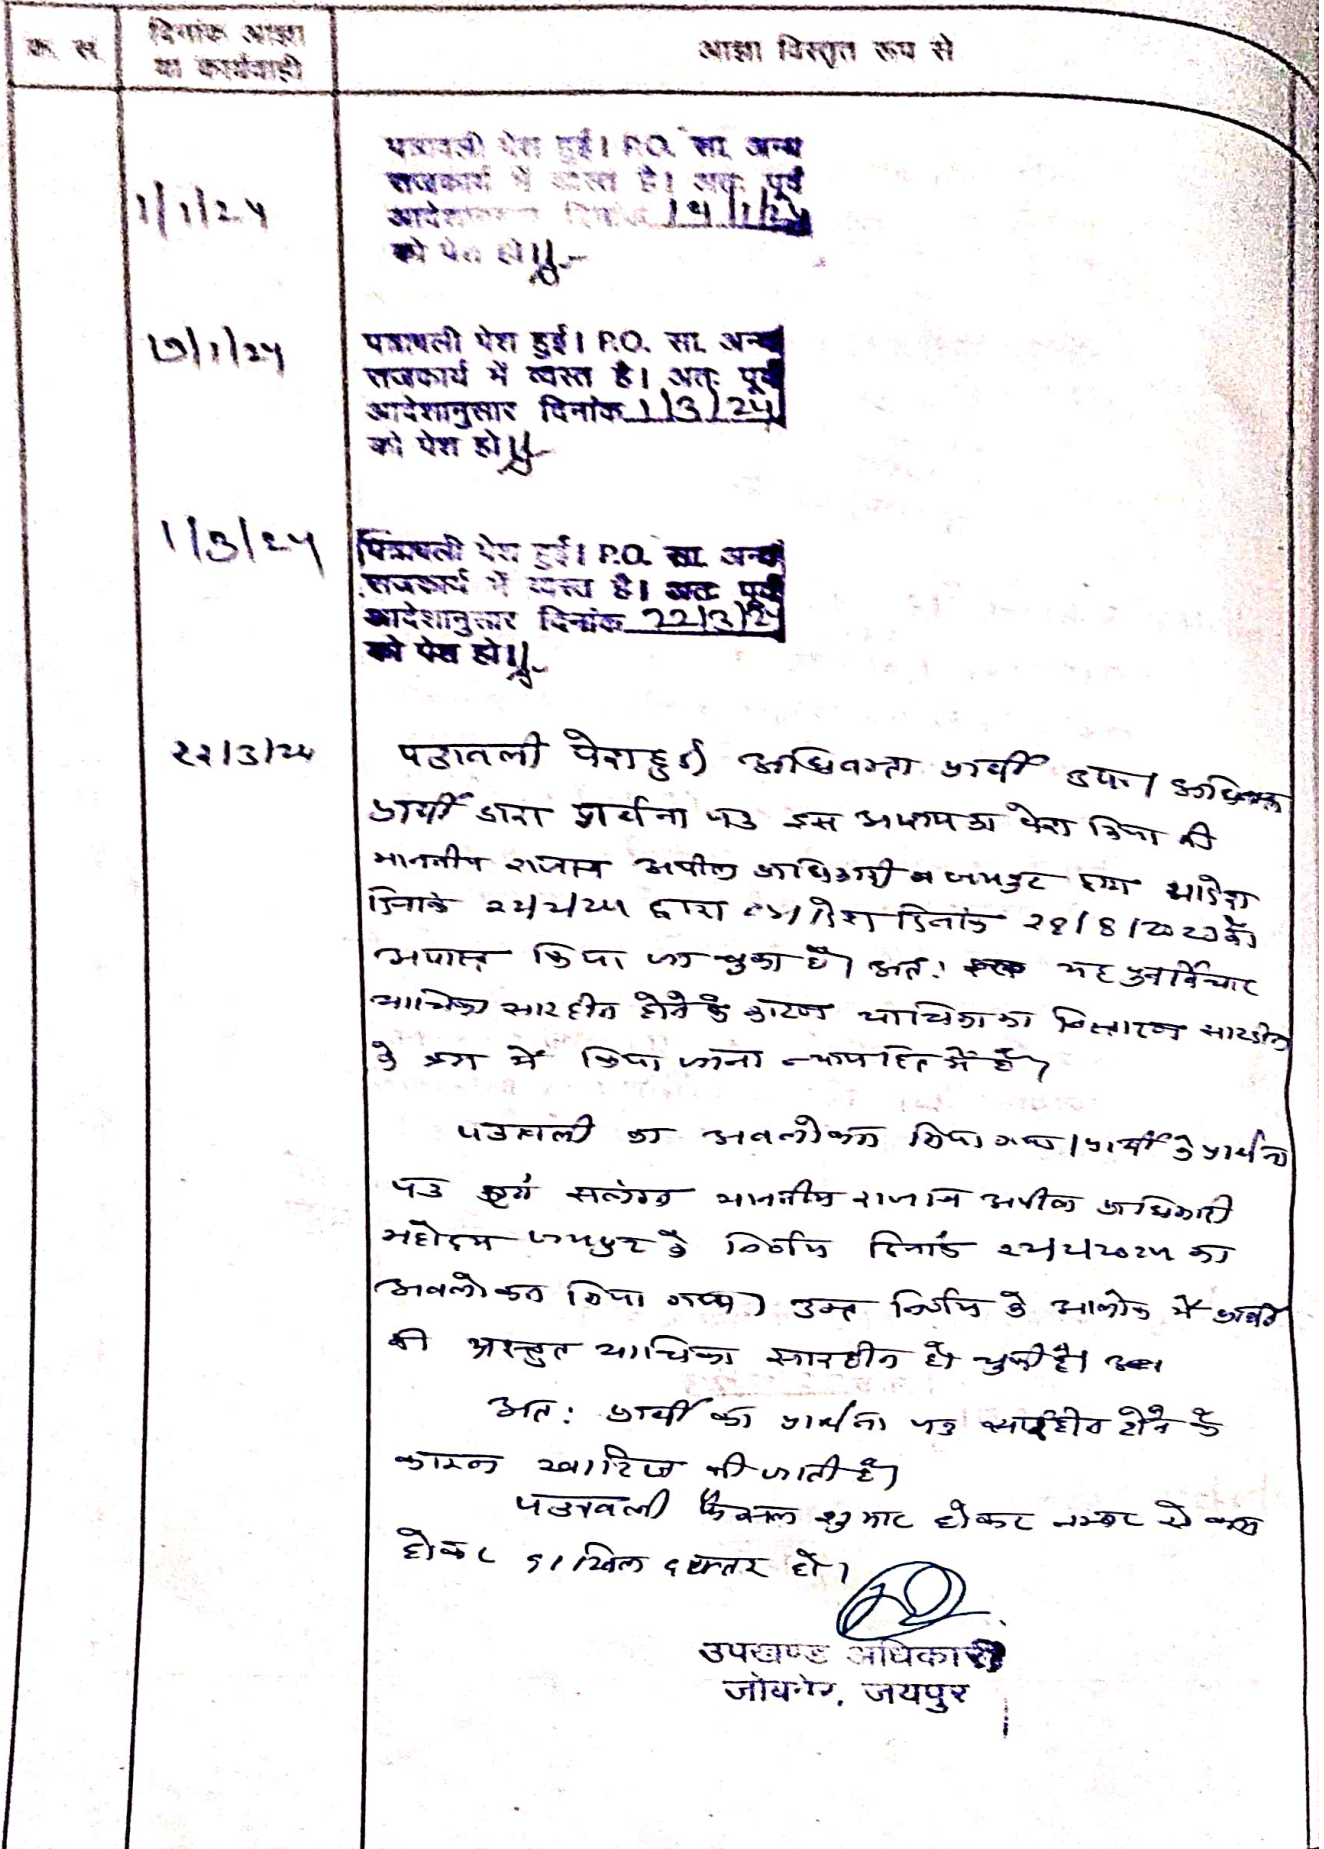 क्र. सं.
दिनांक आज्ञा
या कार्यवाही
आज्ञा विस्तृत रूप से
1/1/25
पत्रावली पेश हुई। P.O. सा. अन्य
राजकार्य में व्यस्त है। अतः पूर्व
आदेशानुसार दिनांक
को पेश हो।
7/1/25
पत्रावली पेश हुई। P.O. सा. अन्य
राजकार्य में व्यस्त है। अतः पूर्व
आदेशानुसार दिनांक 1/3/25
को पेश हो।
1/3/25
पत्रावली पेश हुई। P.O. सा. अन्य
राजकार्य में व्यस्त है। अतः पूर्व
आदेशानुसार दिनांक 22/3/25
को पेश हो।
22/3/25
पत्रावली पेश हुई। अधिवक्ता प्रार्थी उप०। अधिवक्ता
प्रार्थी द्वारा प्रार्थना पत्र इस आशय का पेश किया की
माननीय राजस्व अपील अधिकारी जयपुर द्वारा आदेश
दिनांक द्वारा आदेश दिनांक 21/8/2020 को
अपास्त किया जा चुका है। अतः यह पुनर्विचार
याचिका सारहीन होने के कारण याचिका का निस्तारण सारहीन
के क्रम में किया जाना न्यायहित में है।
पत्रावली का अवलोकन किया गया। प्रार्थी के प्रार्थना
पत्र सलंग्न माननीय राजस्व अपील अधिकारी
महोदय जयपुर के निर्णय दिनांक का
अवलोकन किया गया। उक्त निर्णय के आलोक में प्रार्थी
की प्रस्तुत याचिका सारहीन हो चुकी है।
अतः प्रार्थी का प्रार्थना पत्र सारहीन होने के
कारण खारिज की जाती है।
पत्रावली फैसल शुमार होकर नम्बर से कम
होकर दाखिल दफ्तर हो।
उपखण्ड अधिकारी
जोबनेर, जयपुर